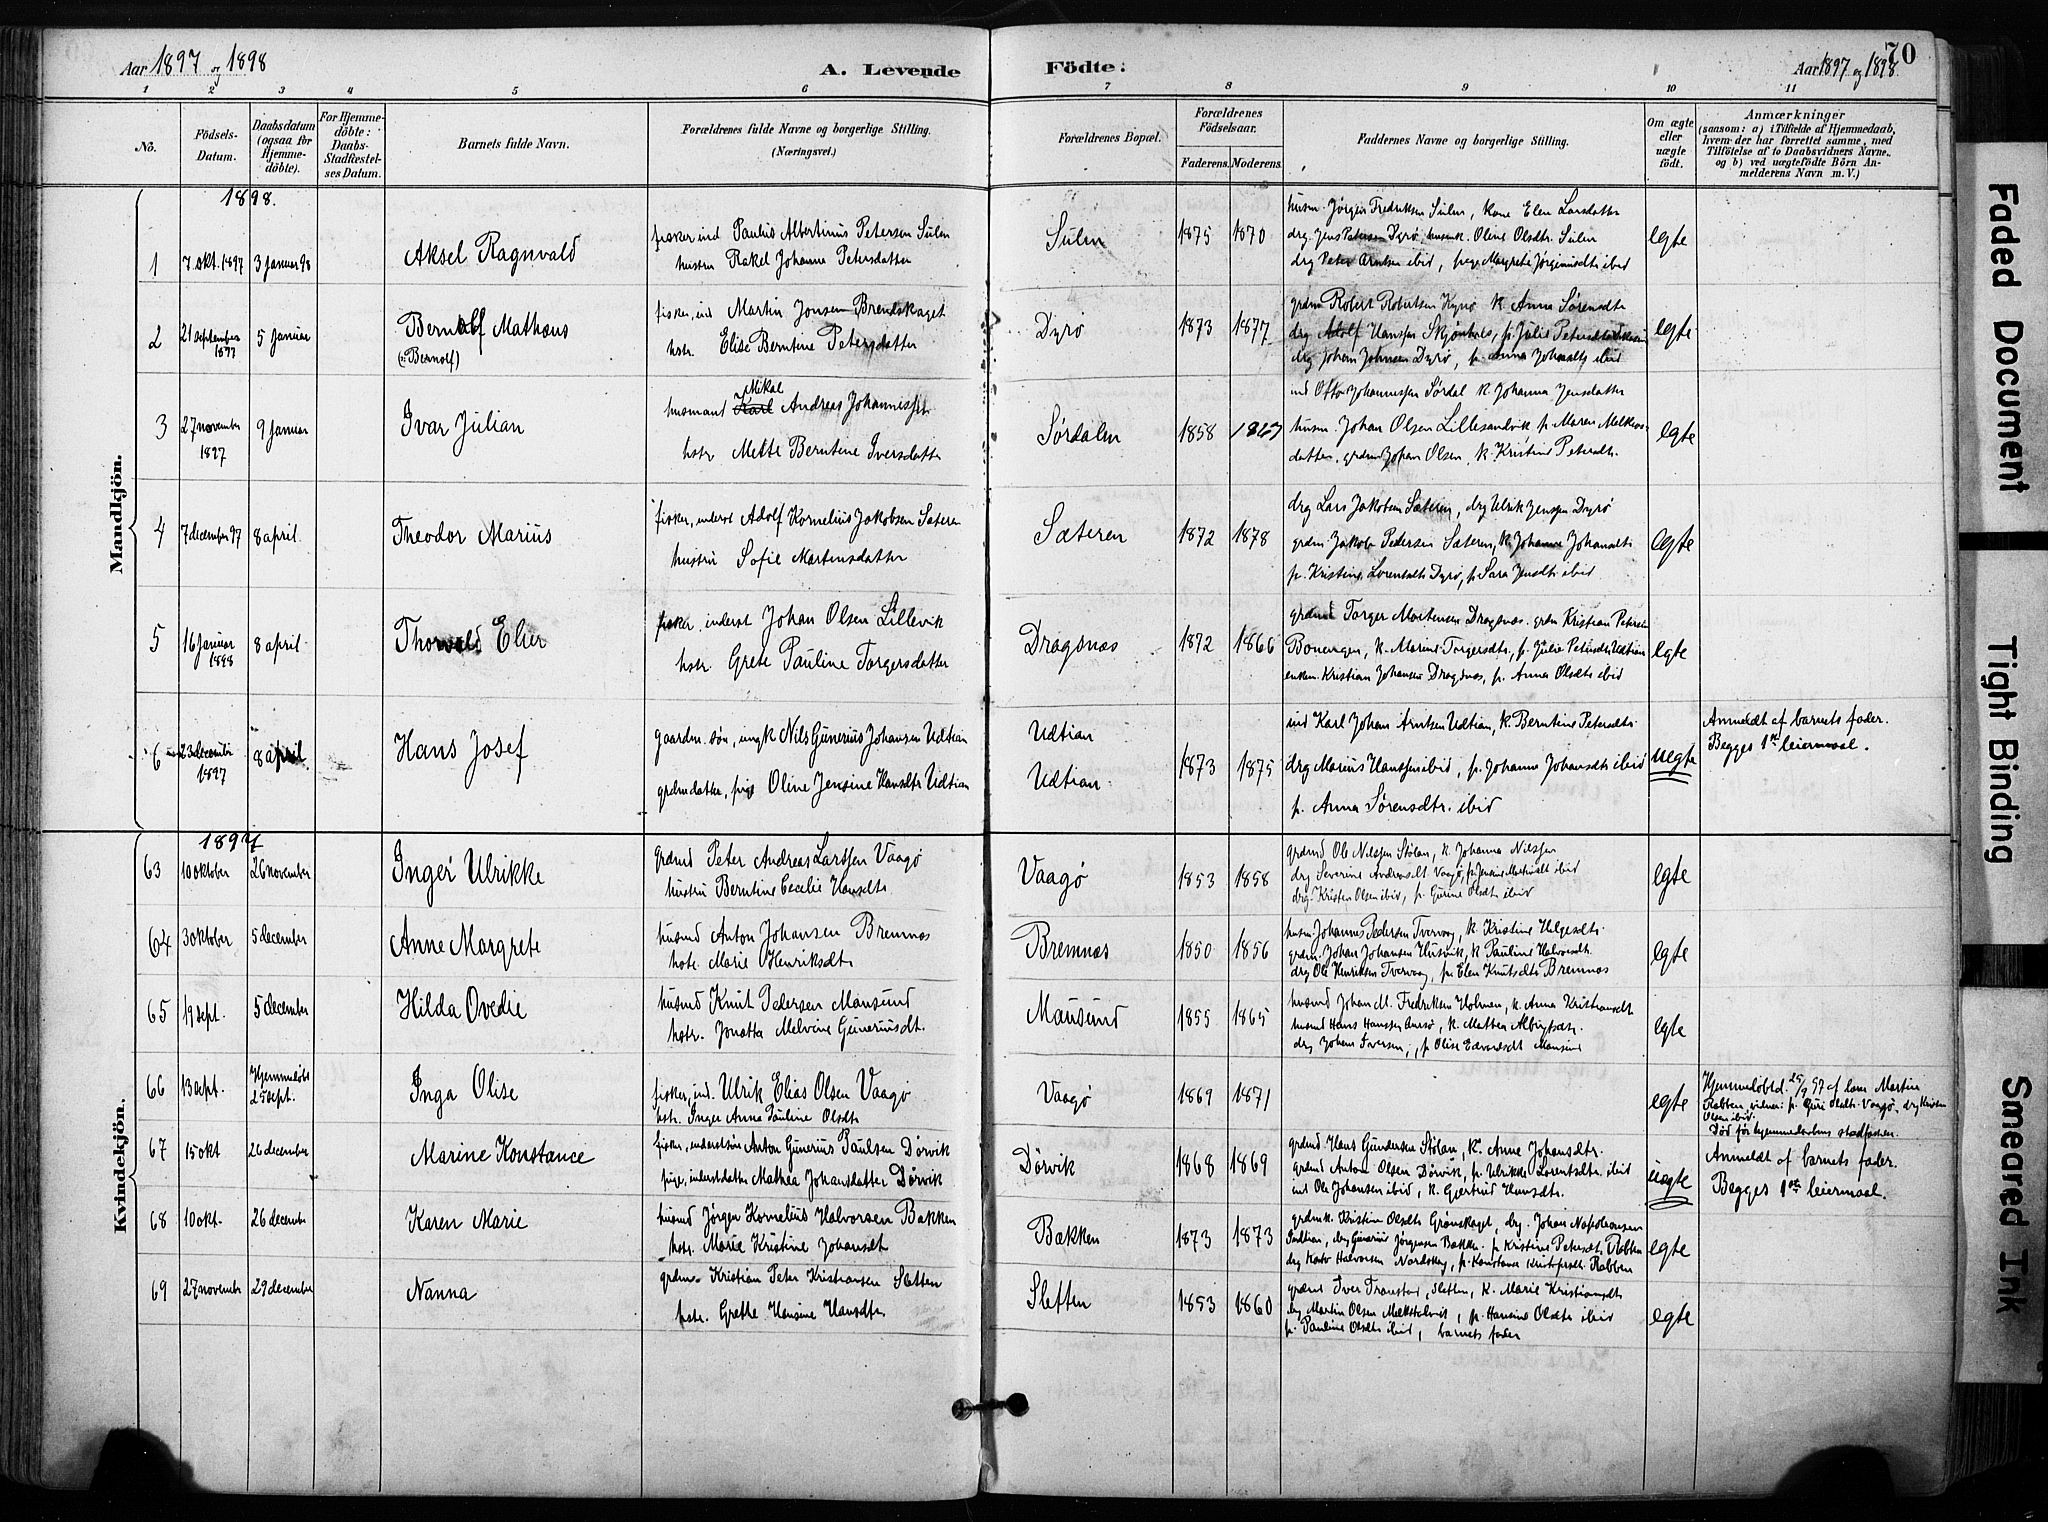 Aar 1897 og 1898
A. Levende Födte:
Aar 1897 og 1898.
70
1 2 3 4 5 6 7 8 9 10 11
No.
Födsels-Datum.
Daabsdatum (ogsaa for Hjemme-döbte).
For Hjemme-döbte: Daabs-Stadfæstel-ses Datum.
Barnets fulde Navn.
Forældrenes fulde Navne og borgerlige Stilling. (Næringsvei.)
Forældrenes Bopæl.
Forældrenes Födselsaar.
Faderens. Moderens.
Faddernes Navne og borgerlige Stilling.
Om ægte eller uægte födt.
Anmærkninger
(saasom: a) i Tilfælde af Hjemmedaab, hvem der har forrettet samme, med Tilföielse af to Daabsvidners Navne, og b) ved uægtefödte Börn An-melderens Navn m. V.)
Mandkjön.
1898.
1 7. okt. 1897 3 Januar 98 Aksel Ragnvald
fisker, ind Paulus Albertinus Petersen Sulen
hustru Rakel Johanna Petersdatter
Sulen 1875 1870
husm. Jörgen Fredriksen Sulen, kone Elen Larsdatter
drg. Jens Petersen Dyrø, husmk. Oline Olsdtr. Sulen
drg Peter Arntsen ibid, pige Margrete Jørginusdtr ibid
egte
2 21 september 1897 5 Januar Bernolf Mathæus
(: Bernolf)
fisker, ind Martin Jonsen Brendskaget
hstr. Elise Berntine Petersdatter
Dyrø 1873 1877
grdm Robert Robertsen Dyrø k. Anna Sørensdtr
drg Adolf Hanssen Skjønhals, p. Julie Petersdatter
drg Johan Johnsen Dyrø, p. Anna Johansdtr ibid
egte
3 27 november 1897 9 Januar Ivar Julian
Mikal
husmand Karl Andreas Johannissen
hstr Mette Berntine Iversdatter
Sørdalen 1858 1863
ind Otto Johannessen Sørdal k. Johanna Jensdatter
husm. Johan Olsen Lillesandvik p. Maren Melkiors-
datter, grdm Johan Olsen, k. Kristine Petersdtr.
egte
4 7 december 97 8 april. Theodor Marius
fisker, inderst Adolf Kornelius Jakobsen Sæteren
hustru Sofie Martensdatter
Sæteren 1872 1878
drg Lars Jakobsen Sæteren, drg Ulrik Jenssen Dyrø
grdm Jakob Pedersen Sæteren, k. Johanna Johansdtr
p. Kristine Lorentsdtr Dyrø, p. Sara Jensdtr ibid
egte
5 16 Januar 1898 8 april. Thorvald Elier
fisker. inderst Johan Olsen Lillevik
hstr. Grete Pauline Torgersdatter
Dragsnæs 1872 1866
grdmd Torger Mortensen Dragsnæs. grdm Kristian Petersen
Bonengen, k. Marine Torgersdtr., p. Julie Petersdtr Udtian
enkem. Kristian Johansen Dragsnæs, p. Anna Olsdtr ibid
egte
6 23 december 1897 8 april Hans Josef
gaardm. søn, ungk Nils Gunerius Johansen Udtian
grdm datter, pige Oline Jensine Hansdtr Udtian
Udtian
Udtian
1873 1875
ind Karl Johan Arntsen Udtian, k. Berntine Petersdtr.
drg Marius Hanssen ibid, p. Johanna Johansdtr ibid
p. Anna Sørensdtr. ibid
uegte
Anmeldt af barnets fader.
Begges 1ste leiermaal.
Kvindekjön.
1897
63 10 oktober 26 november Inger Ulrikke
grdmd Peter Andreas Larssen Vaagø
hustru Berntine Cecilie Hansdtr.
Vaagø 1853 1858
grdmd Ole Nilssen Stølan, k. Johanna Nilssen
drg Severine Andreasdt Vaagø, p. Jensine Mathiasdt ibid
drg. Kristen Olsen ibid, p. Gurine Olsdtr. ibid
egte
64 3 oktober 5 december Anne Margrete
husmd Anton Johansen Bremnæs
hstr. Marie Henriksdtr
Bremnæs 1850 1856
husm Johannes Pedersen Tvervaag, k. Kristine Helgesdtr.
grdm. Johan Johansen Husvik, k Pauline Halvorsdtr.
drg Ole Henriksen Tvervaag, p. Elen Knutsdtr Bremnæs
egte
65 19 sept. 5 december Hilda Ovedie
husmd Knut Pedersen Mausund
hstr. Jonetta Melvine Guneriusdt.
Mausund 1855 1865
husmd Johan M. Fredriksen Holmen, k. Anna Kristiansdt
husmd Hans Hanssen, k. Mathea Albrigtsdtr.
drg Johan Iversen, p. Olise Edvardsdt Mausund
egte
66 13 sept. Hjemmedøbt 25 sept. Inga Olise
fisker, ind. Ulrik Elias Olsen Vaagø
hstr. Inger Anna Pauline Olsdt
Vaagø 1869 1871
egte
Hjemmedøbt d. 25/9 97 af Martin
Rabben vidner: p. Guri Olsdtr Vaagø, drg Kristen
Olsen ibid.
Død før hjemmedaabens stadfæsten.
67 15 okt 26 december Marine Konstance
fisker, inderstsøn Anton Gunerius Paulsen Dørvik
pige, inderstdatter Mathea Johansdatter Dørvik
Dørvik 1868 1869
grdmd. Hans Gundersen Stølan, k. Anne Johansdtr.
grdmd Anton Olsen Dørvik, p. Ulrikke Lorentsdtr. ibid
ind Ole Johansen ibid, k. Gjertrud Hansdtr.
uegte
Anmeldt af barnets fader.
Begges 1ste leiermaal.
68 10 okt. 26 december Karen Marie
husmd Jørgen Kornelius Halvorsen Bakken
hstr. Marie Kristine Johansdt
Bakken 1873 1873
grdmk. Kristine Olsdtr Grønskaget, drg. Johan Napoleonsen
Indtian, drg Gunerius Jørgensen Bakken. p. Kristine Petersdt. Rabben
drg Halvorsen Nordskag, p. Konstance Kristofersdtr. Rabben
egte
69 27 november 29 december Nanna
grdm Kristian Peter Kristiansen Sletten
hstr. Grethe Hansine Hansdtr
Sletten 1853 1860
grdmd Iver Tranestad, Sletten, k. Marie Kristiansdt
drg Martin Olsen, p. Hansine Olsdtr ibid
p. Pauline Olsdtr ibid, barnets fader
egte
Faded Document
Tight Binding
Smeared Ink